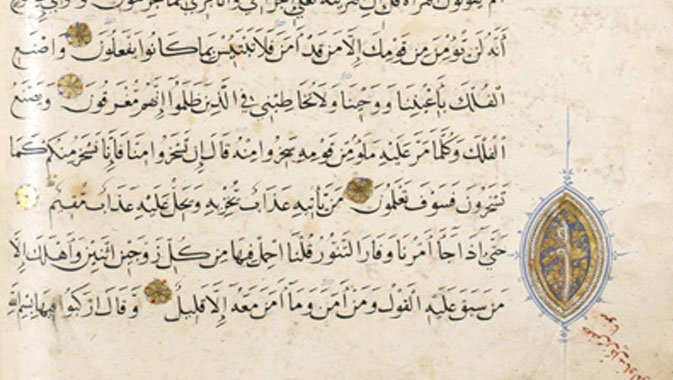 ام يقولون افتراه قل إن افتريته فعلي إجرامي وأنا بريء مما تجرمون وأوحي
أنه لن يؤمن من قومك إلا من قد آمن فلا تبتئس بما كانوا يفعلون واصنع
الفلك بأعيننا ووحينا ولا تخاطبني في الذين ظلموا إنهم مغرقون ويصنع
الفلك وكلما مر عليه ملؤ من قومه سخروا منه قال إن تسخروا منا فإنا نسخر منكم كما
تسخرون فسوف تعلمون من يأتيه عذاب يخزيه ويحل عليه عذاب مقيم
حتى إذا جاء أمرنا وفار التنور قلنا احمل فيها من كل زوجين اثنين وأهلك إلا
من سبق عليه القول ومن آمن وما آمن معه إلا قليل وقال اركبوا فيها بسم الله